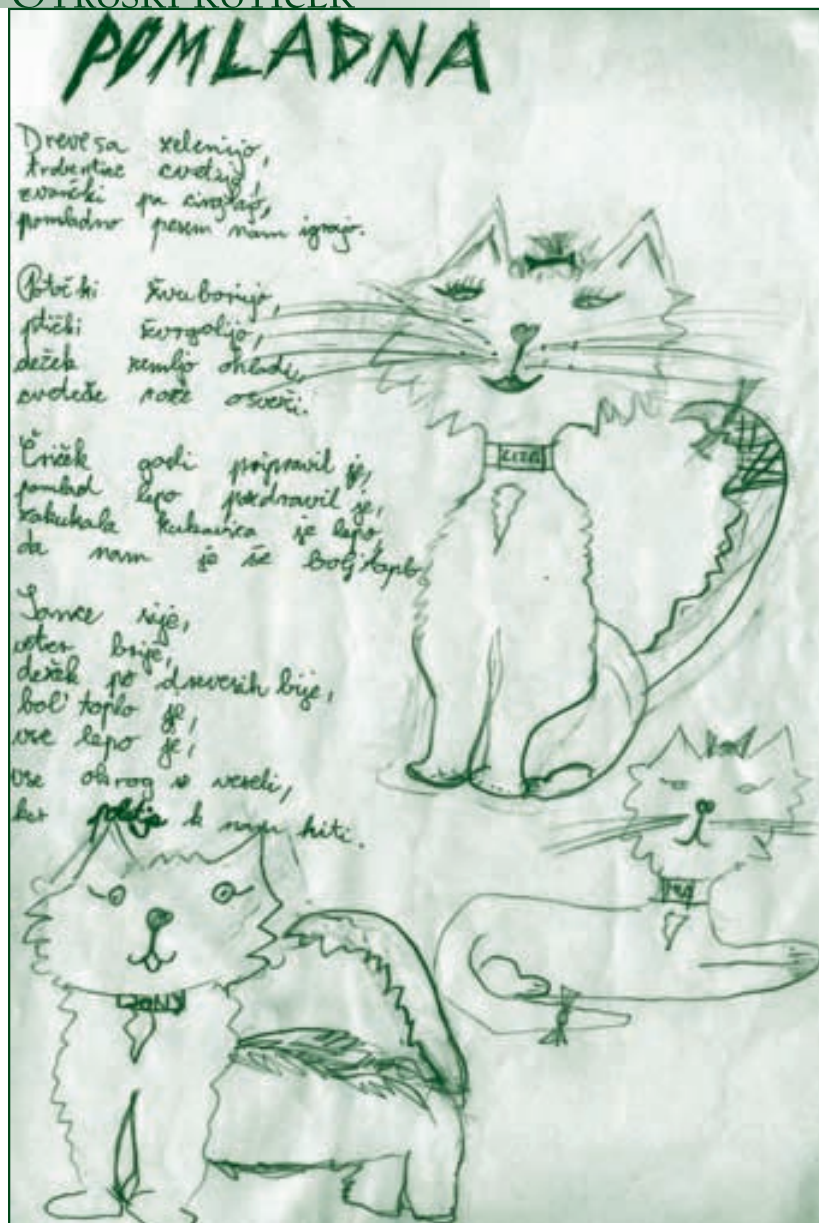 OTROŠKI KOTIČEK
POMLADNA
Drevesa zelenijo,
trobentice cvetijo,
zvončki pa cingljajo,
pomladno pesem nam igrajo.
Potočki žuborijo,
ptički žvrgolijo,
dežek zemljo ohladi,
cvetoče rože osveži.
Čriček godli pripravil je,
pomlad lepo pozdravil je,
zakukala kukavica je lepo,
da nam je še bolj toplo.
Sonce sije,
veter brije,
dežek po drevesih bije,
bol' toplo je,
vse lepo je,
vse okrog se veseli,
ker poletje k nam hiti.
LIZA